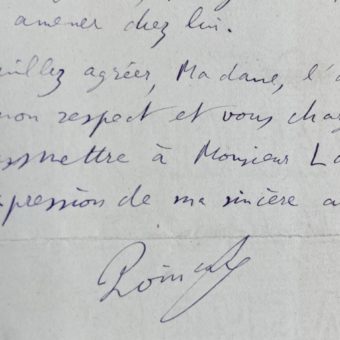 amener chez lui.
uillez agréer, Madame, l'a
mon respect et vous char
nsmettre à Monsieur La
pression de ma sincère a
Poincaré